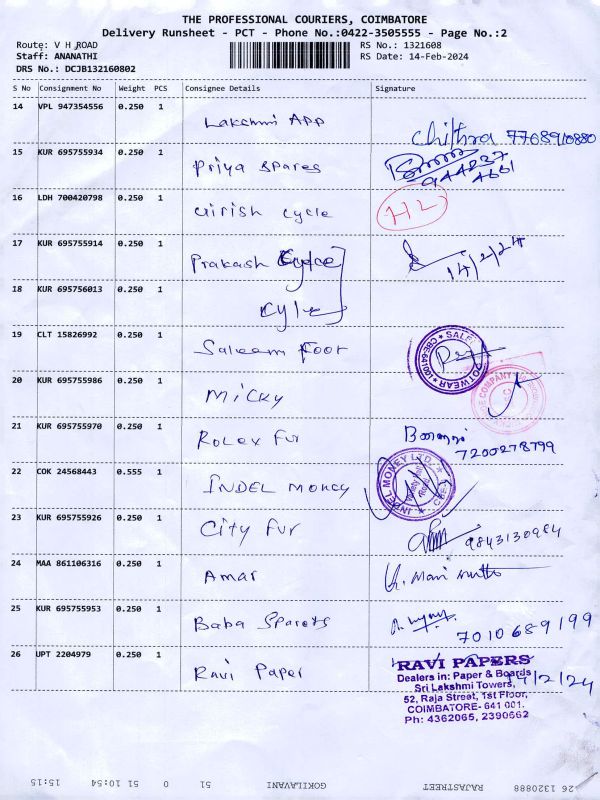 THE PROFESSIONAL COURIERS, COIMBATORE
Delivery Runsheet - PCT - Phone No.:0422-3505555 - Page No.:2
Route: V H ROAD RS No.: 1321608
Staff: ANANATHI RS Date: 14-Feb-2024
DRS No.: DCJB132160802
S No Consignment No Weight PCS Consignee Details Signature
14 VPL 947354556 0.250 1 Lakshmi APP Chithra
15 KUR 695755934 0.250 1 Priya Spares
16 LDH 700420798 0.250 1 Girish Cycle HL
17 KUR 695755914 0.250 1 Prakash Cycle 14/2/24
18 KUR 695756013 0.250 1 Cyle
19 CLT 15826992 0.250 1 Saleem Foot
20 KUR 695755986 0.250 1 Micky
21 KUR 695755970 0.250 1 Rolex Fur 7200278799
22 COK 24568443 0.555 1 INDEL Money INDEL MONEY LTD.
23 KUR 695755926 0.250 1 City Fur 9843130984
24 MAA 861106316 0.250 1 Amar
25 KUR 695755953 0.250 1 Baba Sparets 7010689199
26 UPT 2204979 0.250 1 Ravi Paper 14/2/24
RAVI PAPERS
Dealers in: Paper & Boards
Sri Lakshmi Towers,
52, Raja Street, 1st Floor,
COIMBATORE- 641 001.
Ph: 4362065, 2390662
26 1320888 RAJASTREET GOKILAVANI 51 0 51 10:54 15:15